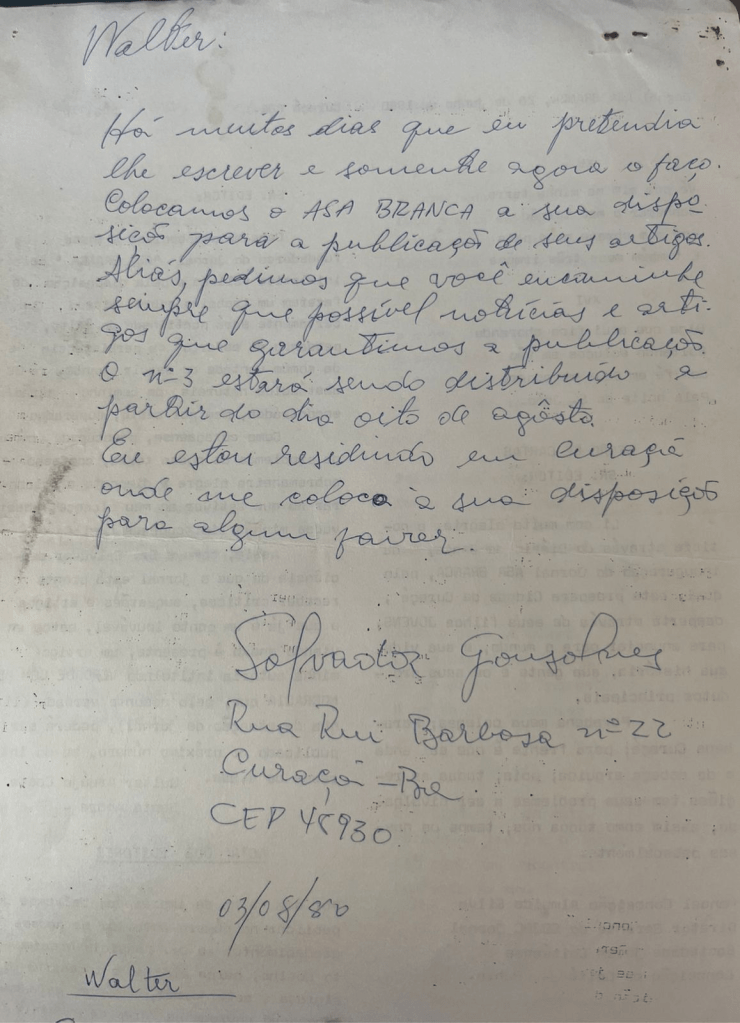 Walter:
Há muitos dias que eu pretendia
lhe escrever e somente agora o faço.
Colocamos o ASA BRANCA a sua dispo-
sição para a publicação de seus artigos.
Aliás, pedimos que você encaminhe
sempre que possível notícias e arti-
gos que garantimos a publicação.
O nº 3 estará sendo distribuído a
partir do dia oito de agôsto.
Eu estou residindo em Curaçá
onde me coloco à sua disposição
para algum favor.
Salvador Gonçalves
Rua Rui Barbosa nº 22
Curaçá - Ba
CEP 48930
03/08/80
Walter